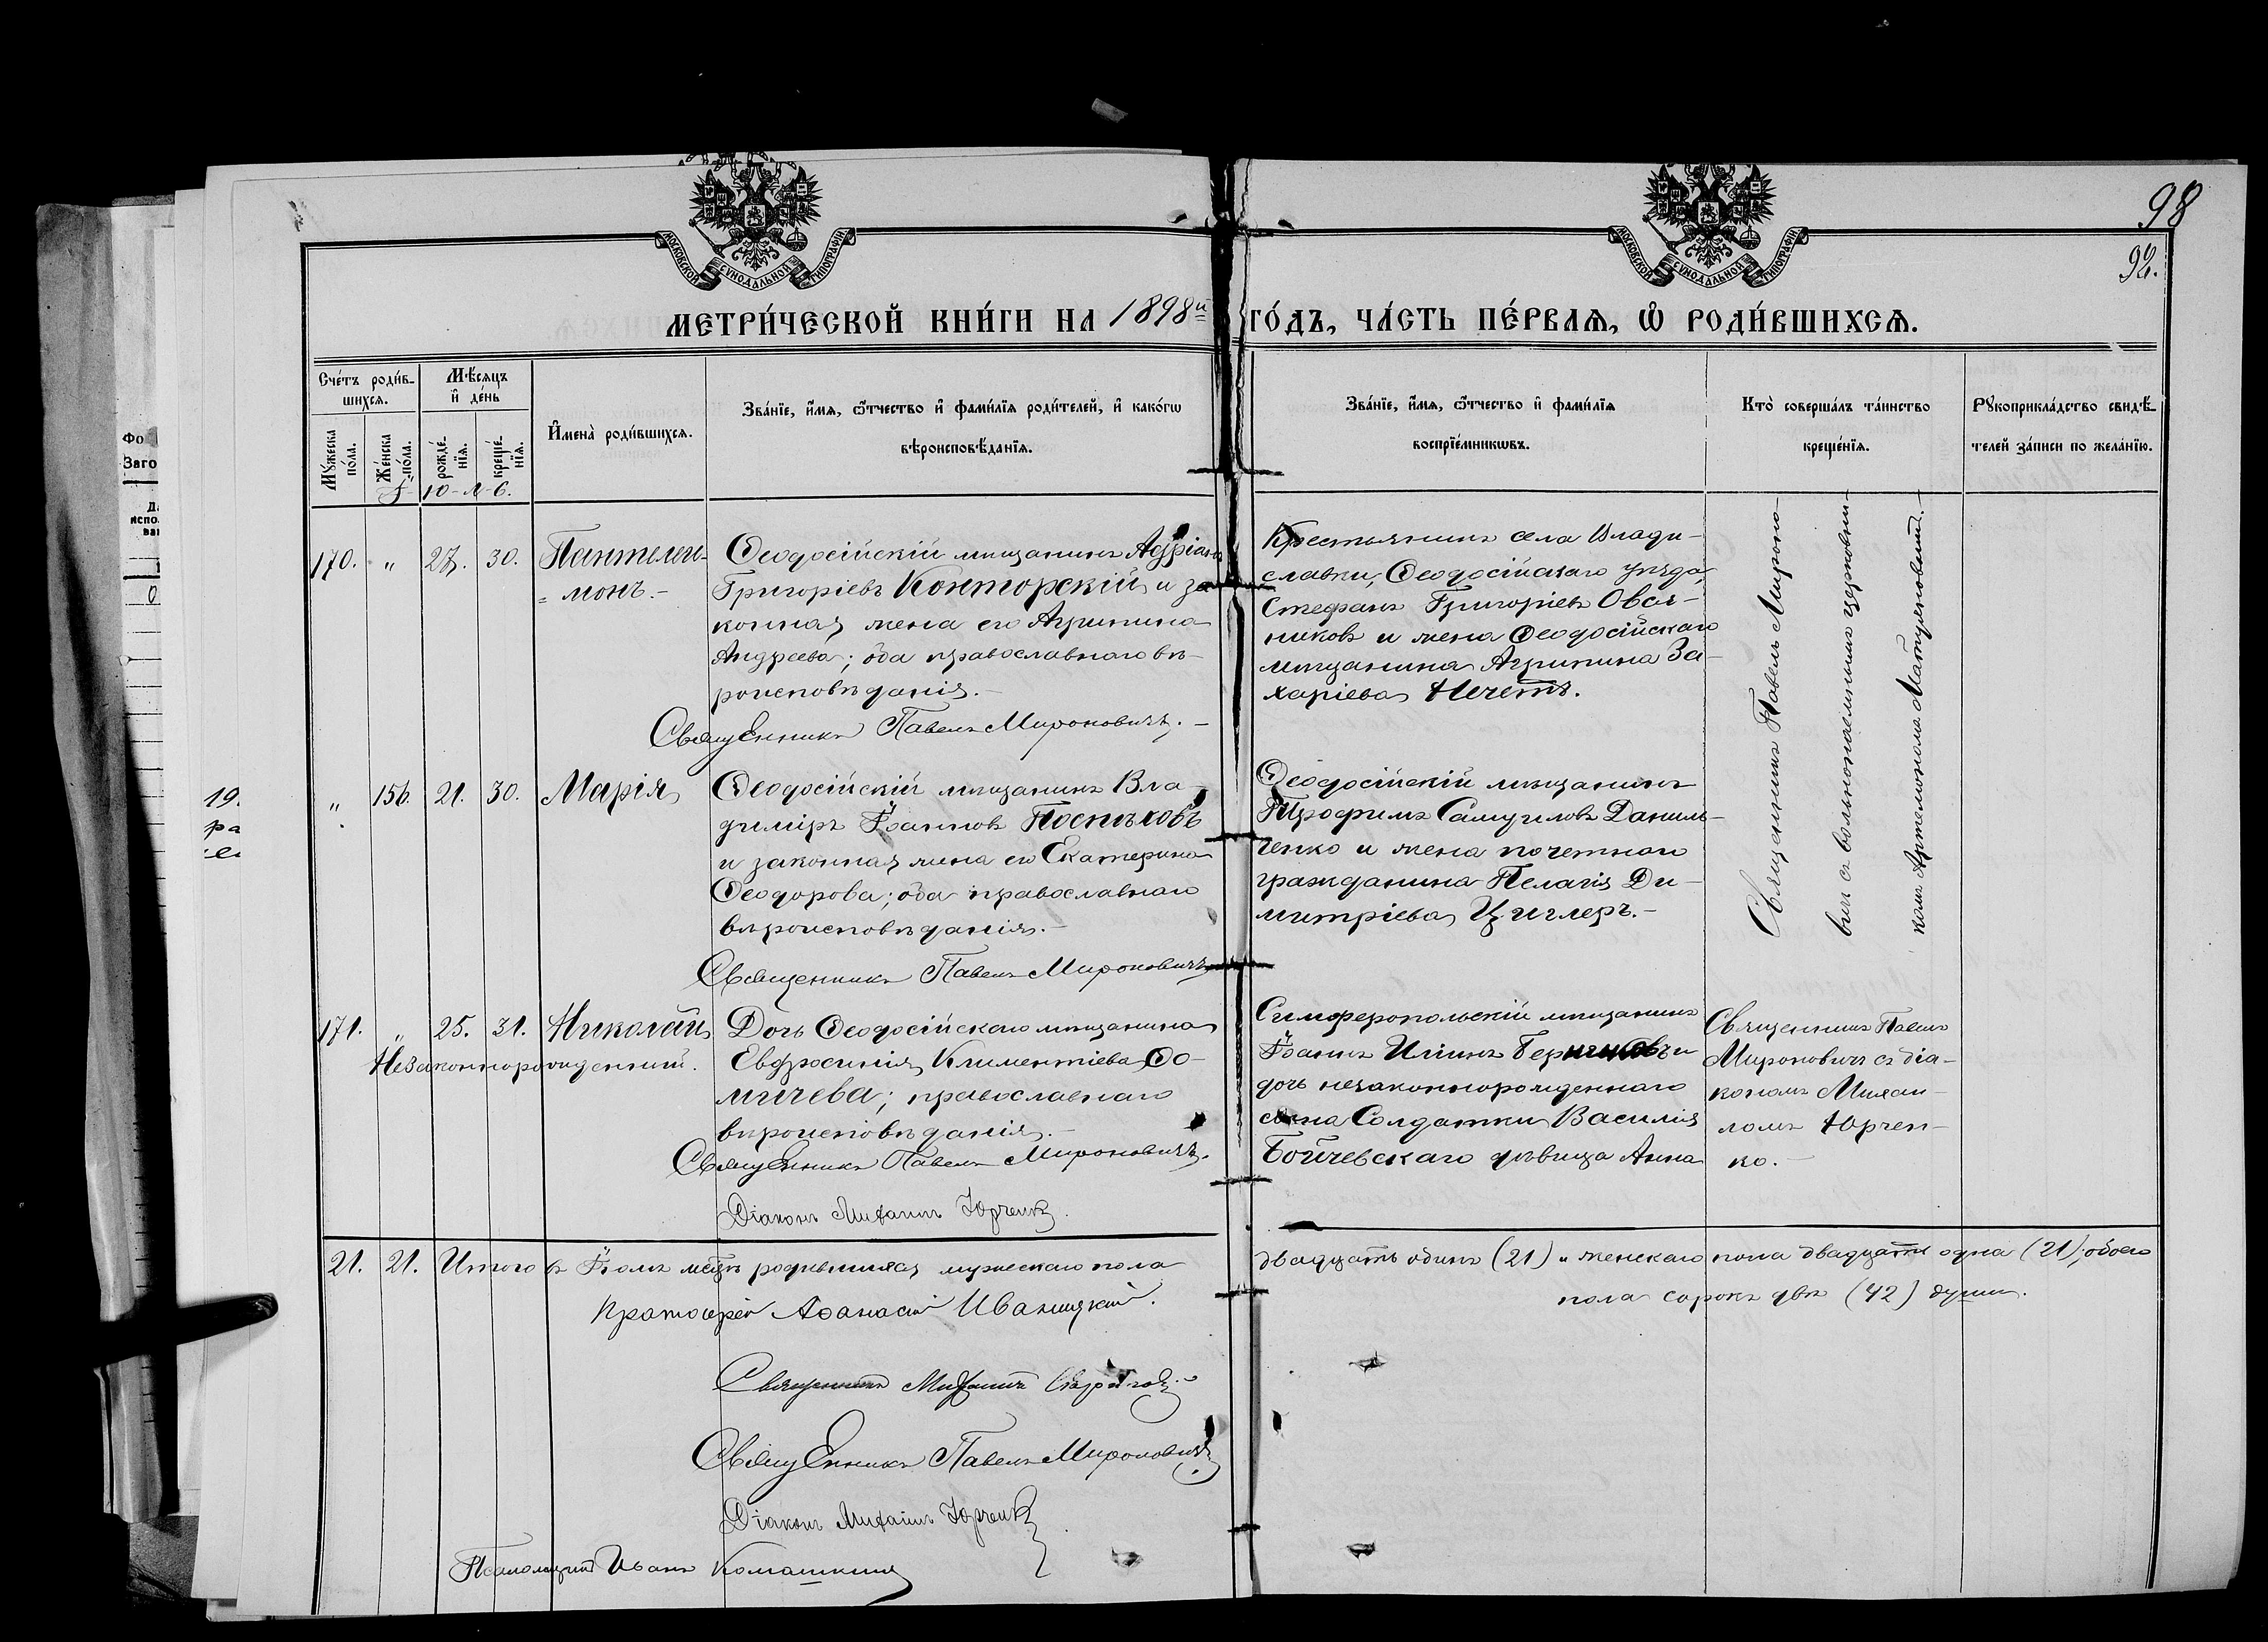 98
92.
МОСКОВСКОЙ СУНОДАЛЬНОЙ ТИПОГРАФІИ
МОСКОВСКОЙ СУНОДАЛЬНОЙ ТИПОГРАФІИ
МЕТРИ́ЧЕСКОЙ КНИ́ГИ НА 1898й ГО́ДЪ, ЧА́СТЬ ПЕ́РВАѦ, Ѡ РОДИ́ВШИХСѦ.
Сче́тъ роди́в-
шихсѧ.
Мѣ́сяцъ
и҆ де́нь
Мꙋ́жеска
по́ла.
Же́нска
по́ла.
рожде́-
нїѧ.
креще́-
нїѧ.
И҆мена̀ роди́вшихсѧ.
Зва́нїе, и҆́мѧ, ѻ҆́тчество и҆ фами́лїѧ роди́телей, и҆ како́гѡ
вѣроисповѣ́данїѧ.
Зва́нїе, и҆́мѧ, ѻ҆́тчество и҆ фами́лїѧ
воспрїе́мникѡвъ.
Кто̀ соверша́лъ та́инство
креще́нїѧ.
Рꙋкоприкла́дство свидѣ́-
телей за́писи по жела́нїю.
170. " 27. 30. Пантелеи-
монъ.-
Ѳеодосійскій мѣщанинъ Адріанъ
Григоріевъ Конторскій и за
конная жена его Агрипина
Андреева; оба православнаго вѣ-
роисповѣданія.-
Священникъ Павелъ Мироновичъ.-
Крестьянинъ села Влади-
славки, Ѳеодосійскаго уѣзда,
Стефанъ Григоріевъ Овсян-
никовъ и жена Ѳеодосійскаго
мѣщанина Агрипина За-
харіева Нечетъ.
Священникъ Павелъ Мироно-
вичъ съ вольнонаемнымъ церковни-
комъ Артемономъ Матусевичъ.-
" 156. 21. 30. Марія
Ѳеодосійскій мѣщанинъ Вла-
диміръ Іоанновъ Поспѣховъ
и законная жена его Екатерина
Ѳеодорова; оба православнаго
вѣроисповѣданія.-
Священникъ Павелъ Мироновичъ
Ѳеодосійскій мѣщанинъ
Трофимъ Самуиловъ Даниль-
ченко и жена почетнаго
гражданина Пелагія Ди-
митріева Циглеръ.-
171. " 25. 31. Николай
Незаконнорожденный.
Дочь Ѳеодосійскаго мѣщанина
Евфросинія Климентіева Ѳо-
мичева; православнаго
вѣроисповѣданія.-
Священникъ Павелъ Мироновичъ.
Діаконъ Михаилъ Юрченко.
Симферопольскій мѣщанинъ
Іоаннъ Иліинъ и
дочь незаконнорожденнаго
сына Солдатки Василія
Бойчевскаго дѣвица Анна
Священникъ Павелъ
Мироновичъ съ діа-
кономъ Михаи-
ломъ Юрчен-
ко.-
21. 21. Итого въ Іюлѣ м-цѣ родившихся мужескаго пола
двадцать одинъ (21) и женскаго пола двадцать одна (21); обоего
пола сорокъ двѣ (42) души.
Протоіерей Аѳанасій Иваницкій.
Священникъ Михаилъ
Священникъ Павелъ Мироновичъ
Діаконъ Михаилъ Юрченко
Псаломщикъ Иванъ Комашкинъ